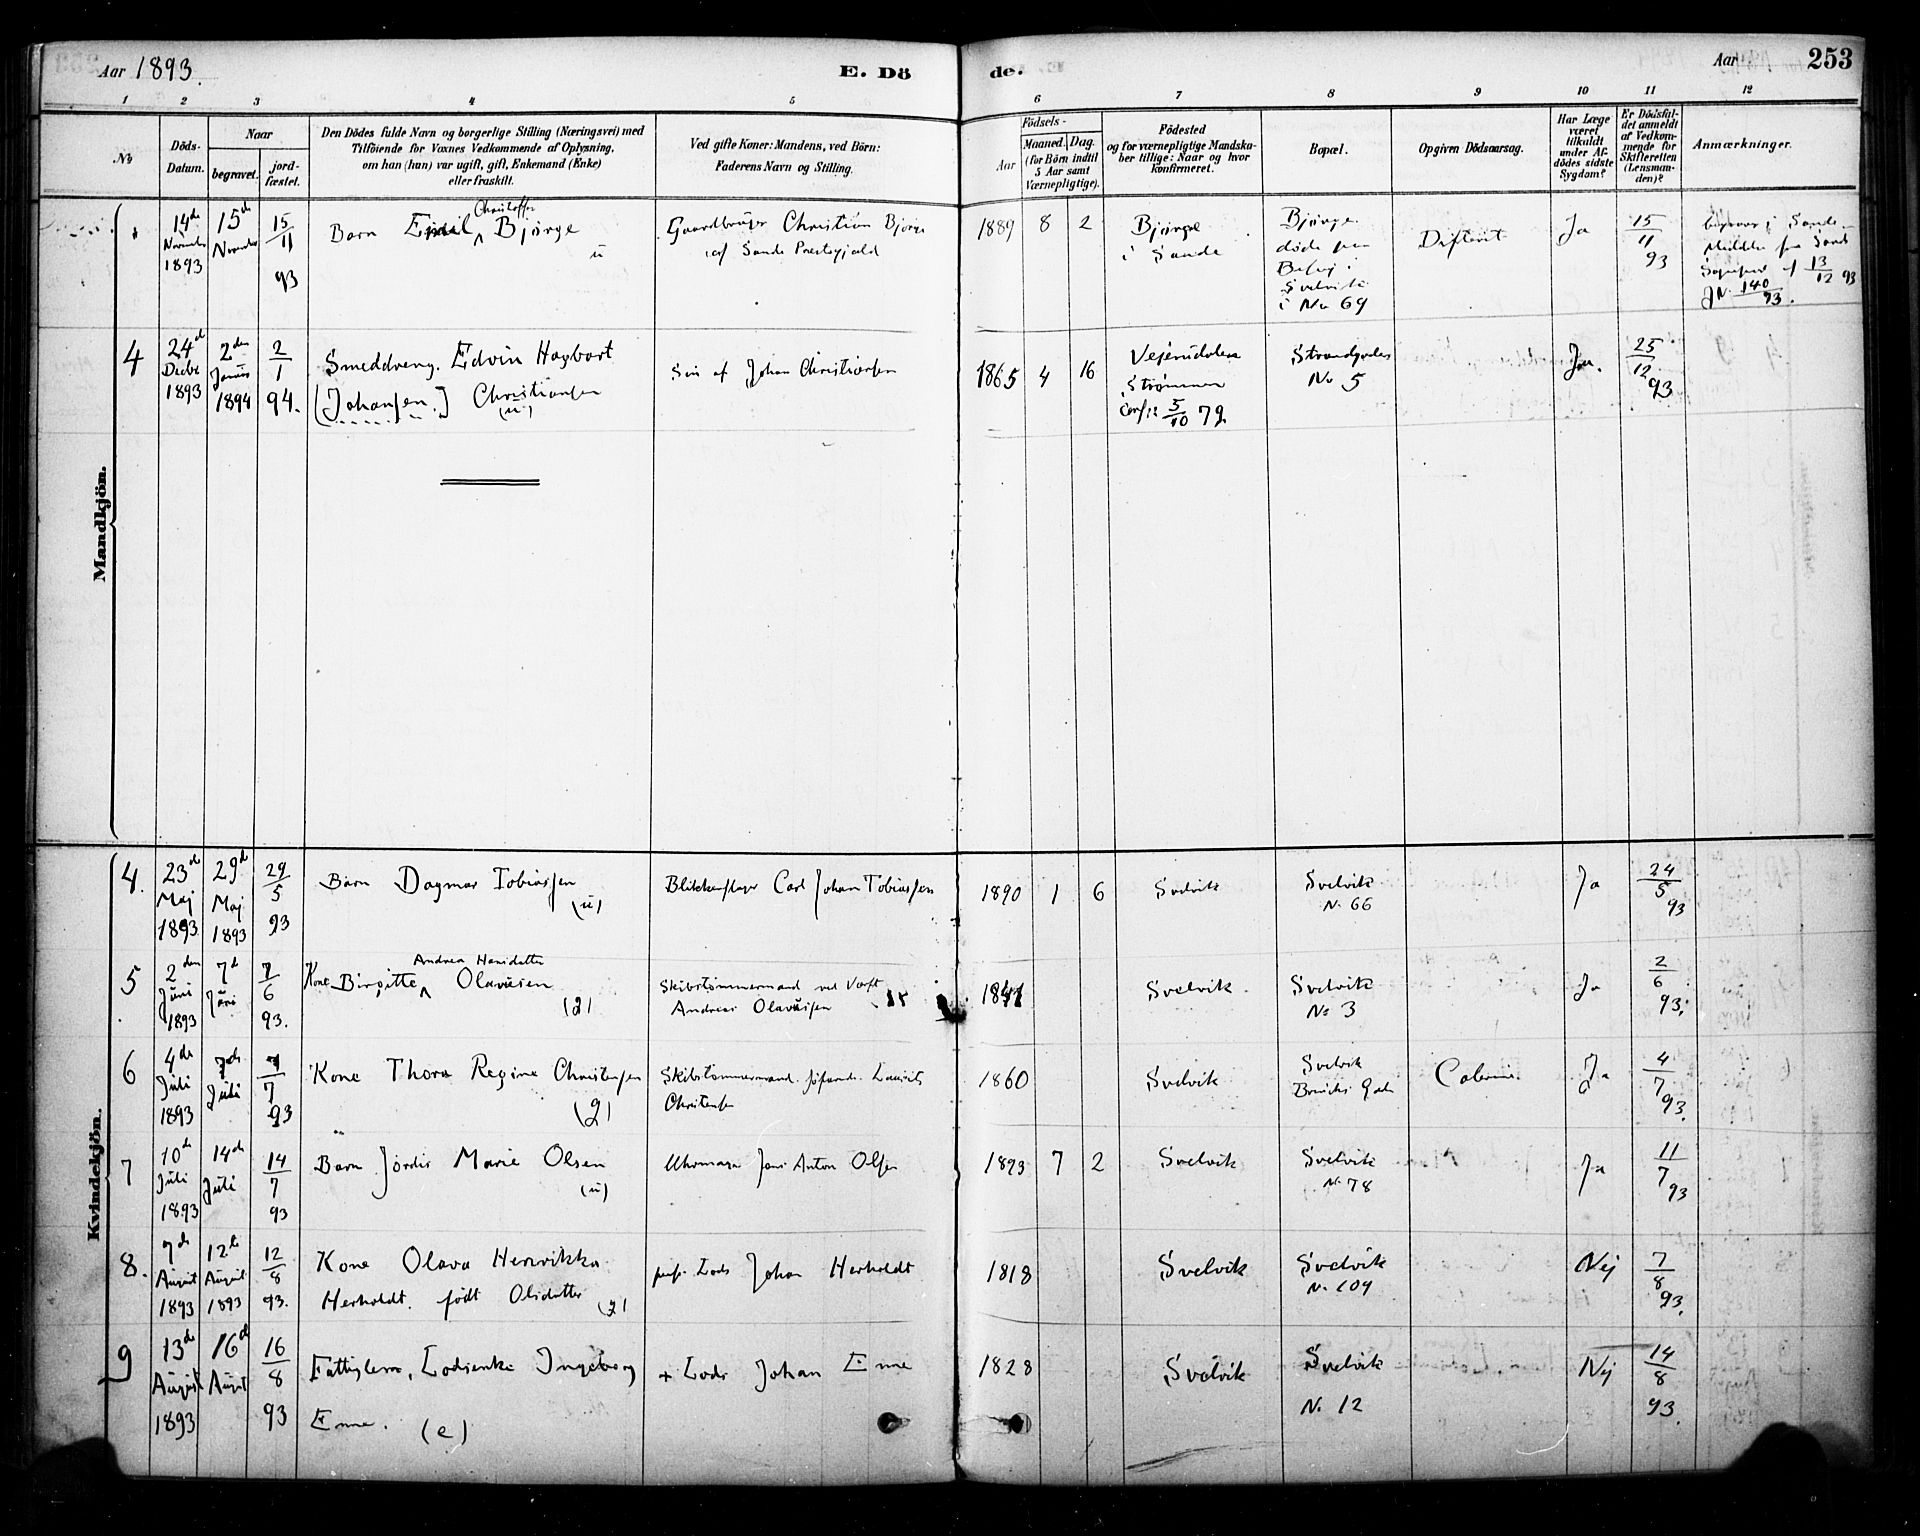 Aar 1893.
E. Döde.
Aar
253
1 2 3 4 5 6 7 8 9 10 11 12
No
Döds-Datum.
Naar
begravet.
jord-fæstet.
Den Dödes fulde Navn og borgerlige Stilling (Næringsvei) med
Tilföiende for Voxnes Vedkommende af Oplysning,
om han (hun) var ugift, gift, Enkemand (Enke)
eller fraskilt.
Ved gifte Koner: Mandens, ved Börn:
Faderens Navn og Stilling.
Födsels-
Aar
Maaned. Dag.
(for Börn indtil
5 Aar samt
Værnepligtige).
Födested
og for værnepligtige Mandska-
ber tillige: Naar og hvor
konfirmeret.
Bopæl.
Opgiven Dödsaarsag.
Har Læge
været
tilkaldt
under Af-
dödes sidste
Sygdom?
Er Dödsfal-
det anmeldt
af Vedkom-
mende for
Skifteretten
(Lensman-
den)?
Anmærkninger.
Mandkjön.
14de November 1893 15de November 15/11 93 Barn Emil Christoffer Bjørge u Gaardbruger Christian Bjørge af Sande Prestegjæld 1889 8 2 Bjørge i Sande Bjørge døde paa Besøg i Svelvik i No 69 Difterit Ja 15/11 93 Sande 13/12 93 JN. 140/93.
4 24d Decbr 1893 2den Januar 1894 2/1 94. Smeddreng. Edvin Hagbart [Johansen.] Christiansen (u) Søn af Johan Christiansen 1865 4 16 Strømmen Conf: 5/10 79. Strandgaden No 5 Ja. 25/12 93
Kvindekjön.
4. 23d Maj 1893 29d Maj 1893 29/5 93 Barn Dagmar Tobiassen (u) Blikkenslager Carl Johan Tobiassen 1890 1 6 Svelvik Svelvik N. 66 Ja 24/5 93
5 2den Juni 1893 7d Juni 7/6 93. Kone Birgitte Andrea Hansdatter Olavesen (g) Skibstømmermand ved Værft Andreas Olavesen 1841 Svelvik. Svelvik No 3 Ja 2/6 93.
6 4de Juli 1893 7de Juli 7/7 93 Kone Thora Regine Christensen (g) Skibstømmermand. Lauritz Christensen 1860 Svelvik Svelvik Ja 4/7 93.
7 10de Juli 1893 14de Juli 14/7 93 Barn Jördis Marie Olsen (u) Uhrmager Anton Olsen 1893 7 2 Svelvik Svelvik N. 78 Ja 11/7 93
8. 7de August 1893 12te August 1893 12/8 93. Kone Olava Henrikka Herholdt. født Olsdatter (g) Lods Johan Herholdt 1818 Svelvik Svelvik N. 109 Nej 7/8 93.
9 13de August 1893 16d August 16/8 93 Fattiglem, Lodsenke Ingeborg Enne. (e) + Lods Johan Enne 1828 Svelvik Svelvik N. 12 Nej 14/8 93.